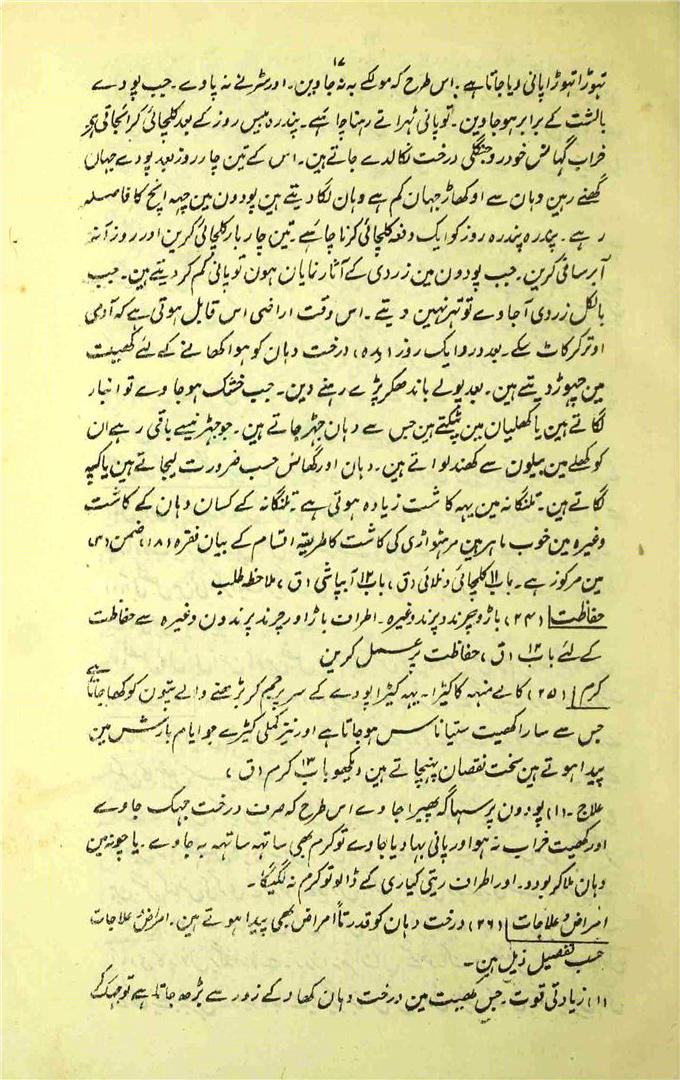 ۱۷
تہوڑا تہوڑا پانی دیا جاتا ہے۔ اس طرح کہ مولکے بہ نہ جاوین۔ اور سڑنے نہ پاوے۔ جب پودے
بالشت کے برابر ہوجاوین۔ تو پانی ٹہراتے رہنا چاہئے۔ پندرہ بیس روز کے بعد کلچائی کرائیجاتی ہے
خراب گہانس خودرو جنگلی درخت نکالدے جاتے ہین۔ اس کے تین چار روز بعد پودے جہان
گھنے رہین وہان سے اوکھاڑ جہان کم ہے وہان لگا دیتے ہین پودون مین چہہ انچ کا فاصلہ
رہے۔ پندرہ پندرہ روز کو ایک دفعہ کلچائی کرنا چاہئے۔ تین چار بار کلچائی کرین اور روزآنہ
آبرسانی کرین۔ جب پودون مین زردی کے آثار نمایان ہون تو پانی کم کر دیتے ہین۔ جب
بالکل زردی آجاوے تو نہر نہین دیتے۔ اس وقت اراضی اس قابل ہوتی ہے کہ آدمی
اوتر کر کاٹ سکے۔ بعد درو ایک روز درخت دہان کو ہوا کھانے کے لئے کھیت
مین چہوڑ دیتے ہین۔ بعد پولے باندھکر پڑے رہنے دین۔ جب خشک ہوجاوے تو انبار
لگاتے ہین یا کھلیان مین پٹکتے ہین جس سے دہان جہڑ جاتے ہین۔ جو جہڑنیسے باقی رہے ان
کو کھلے مین بیلون سے کھندلواتے ہین۔ دہان اور گھانس حسب ضرورت لیجاتے ہین یا گنجہ
لگاتے ہین۔ تلنگانہ مین یہہ کاشت زیادہ ہوتی ہے۔ تلنگانہ کے کسان دہان کے کاشت
وغیرہ مین خوب ماہر ہین مرہٹواڑی کی کاشت کا طریقہ اقسام کے بیان فقرہ (۱۸) ضمن (۴)
مین مرکوز ہے۔ باب ۱۱ کلچائی و نلائی (ق) باب ۱۲ آبپاشی (ق) ملاحظہ طلب
حفاظت (۲۴) باڑ و چرند و پرند وغیرہ۔ اطراف باڑ اور چرند پرندون وغیرہ سے حفاظت
کے لئے باب ۱۳ (ق) حفاظت پر عمل کرین
کرم (۲۵) کالے منہہ کا کیڑا۔ یہہ کیڑا پودے کے سر پر جم کر بڑھنے والے پتیون کو کھا جاتا ہے
جس سے سارا کھیت ستیاناس ہوجاتا ہے اور نیز کملی کیڑے جو ایام بارش مین
پیدا ہوتے ہین سخت نقصان پہنچاتے ہین دیکھو باب ۱۳ کرم (ق)
علاج۔ (۱) پودون پر سہاگہ پھیرا جاوے اس طرح کہ صرف درخت جہک جاوے
اور کھیت خراب نہ ہو اور پانی بہا دیا جاوے تو کرم بھی ساتہہ ساتہہ بہ جاوے۔ یا چونہ مین
دہان ملا کر بودو۔ اور اطراف ریتی کیاری کے ڈالو تو کرم نہ لگیگا۔
امراض و علاجات (۲۶) درخت دہان کو قدرتاً امراض بھی پیدا ہوتے ہین۔ امراض و علاجات
حسب تفصیل ذیل ہین۔
(۱) زیادتی قوت۔ جس کھیت مین درخت دہان کھاد کے زور سے بڑھ جاتا ہے تو جہک کے